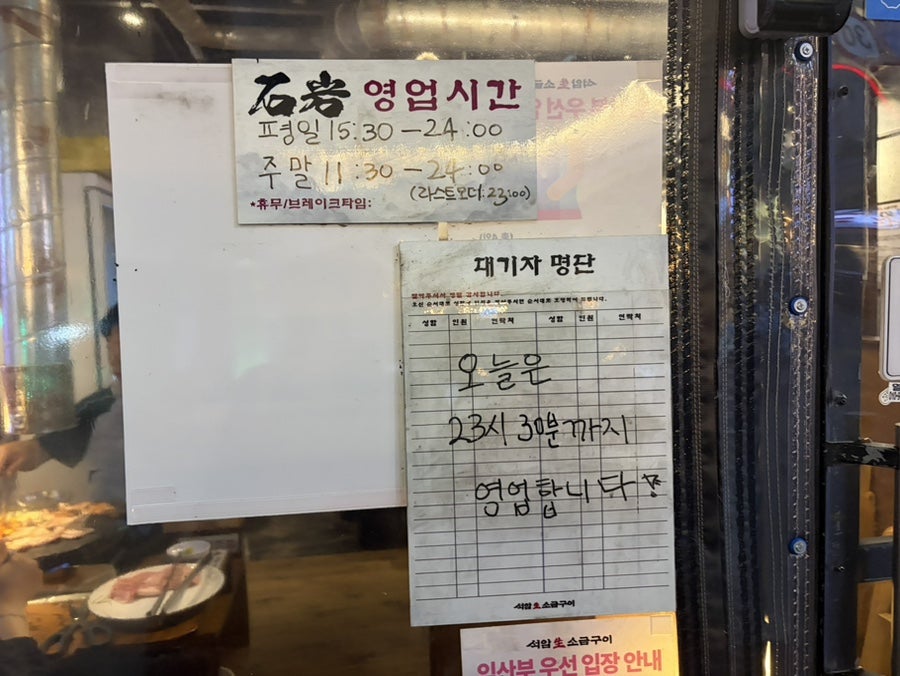 石岩 영업시간
평일 15:30 - 24:00
주말 11:30 - 24:00
(라스트오더:23:00)
*휴무/브레이크타임:
대기자 명단
성함 인원 연락처 성함 인원 연락처
오늘은
23시 30분까지
영업합니다!
석암生소금구이
석암生소금구이
임산부 우선 입장 안내